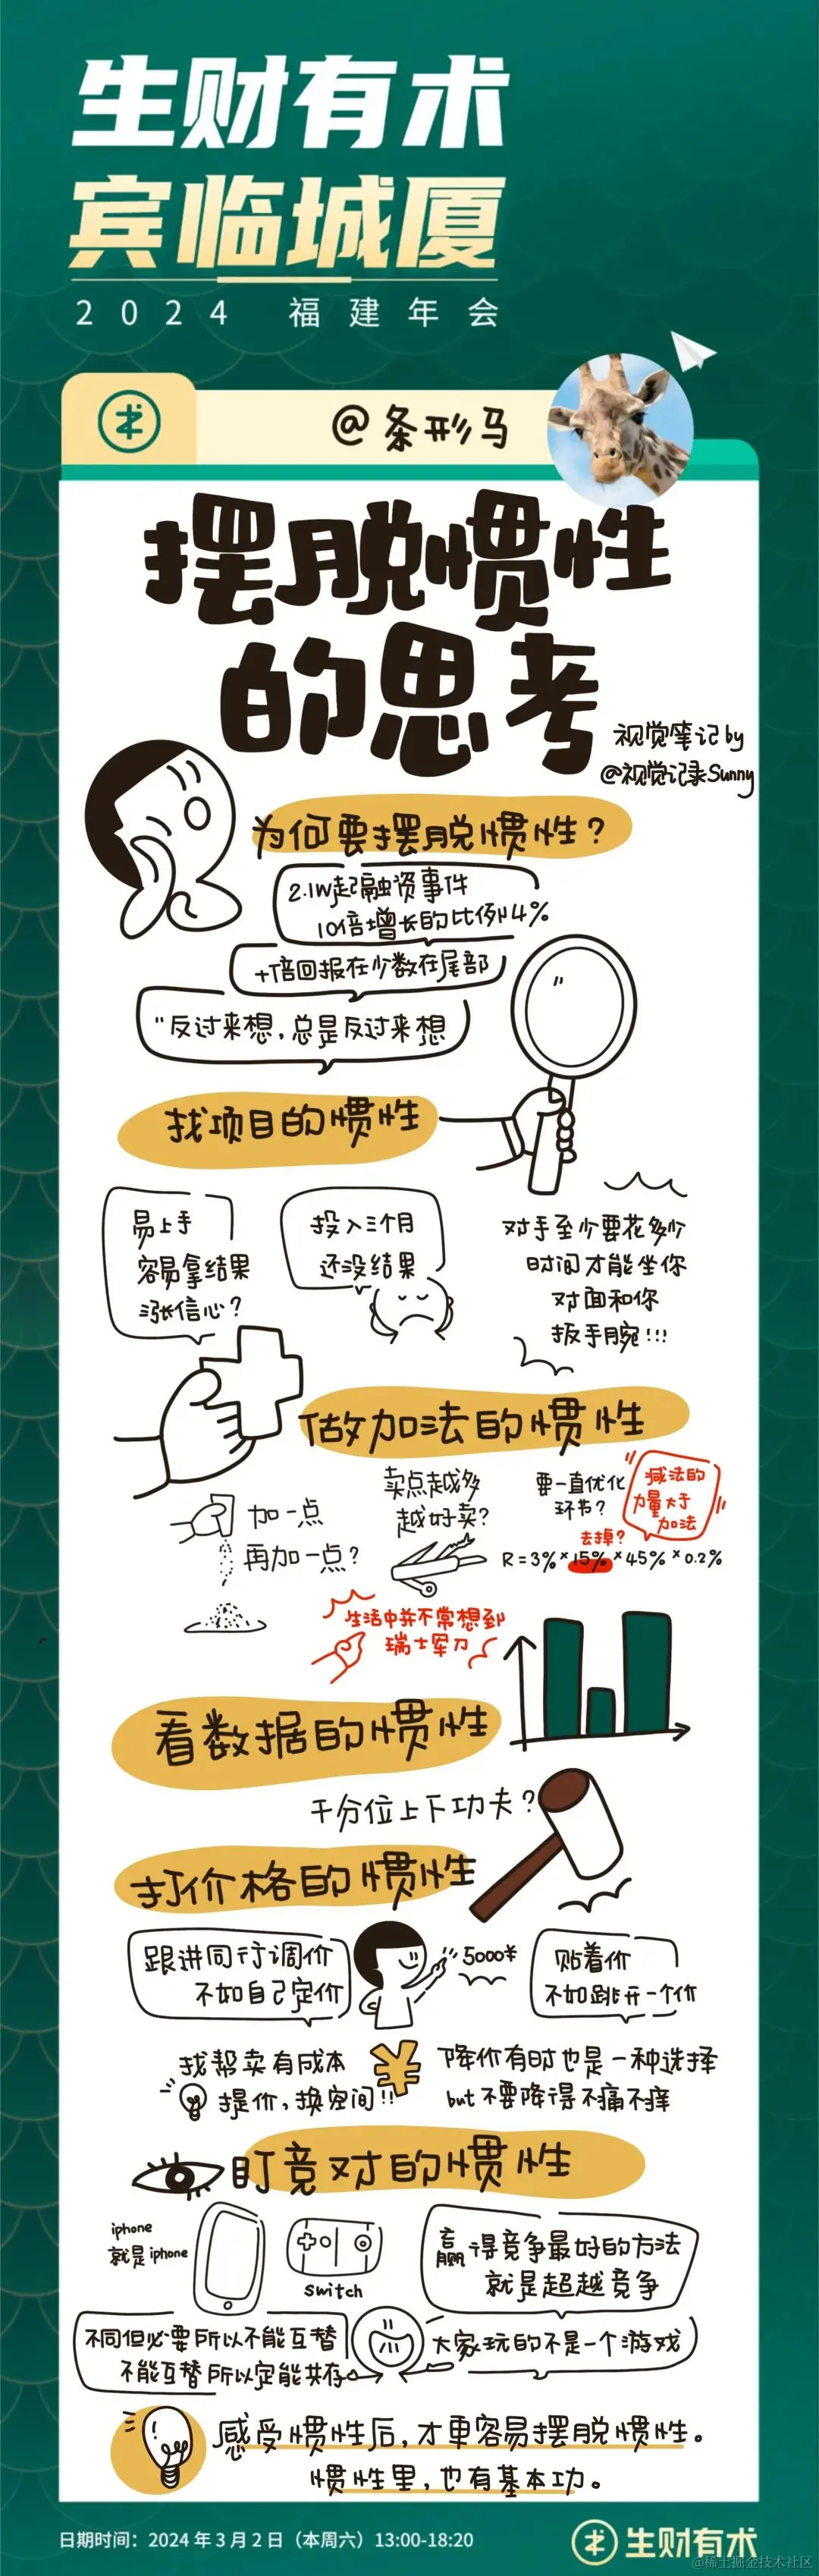 生财有术
宾临城厦
2024 福建年会
@条形马
摆脱惯性
的思考
视觉笔记by
@视觉记录Sunny
为何要摆脱惯性？
2.1W起融资事件
10倍增长的比例4%
+倍回报在少数在尾部
“反过来想，总是反过来想
找项目的惯性
易上手
容易拿结果
涨信心？
投入三个月
还没结果
对手至少要花多少
时间才能坐你
对面和你
扳手腕!!!
做加法的惯性
加一点
再加一点？
卖点越多
越好卖？
要一直优化
环节？
减法的
力量大于
加法
去掉？
R=3%×15%×45%×0.2%
生活中并不常想到
瑞士军刀
看数据的惯性
千分位上下功夫？
打价格的惯性
跟进同行调价
不如自己定价
5000¥
贴着价
不如跳开一个价
找帮卖有成本
提价，换空间!!
¥
降价有时也是一种选择
but不要降得不痛不痒
盯竞对的惯性
iphone
就是iphone
switch
赢得竞争最好的方法
就是超越竞争
不同但必要所以不能互替
不能互替所以定能共存
大家玩的不是一个游戏
感受惯性后，才更容易摆脱惯性。
惯性里，也有基本功。
日期时间：2024年3月2日（本周六）13:00-18:20
生财有术
@稀土掘金技术社区